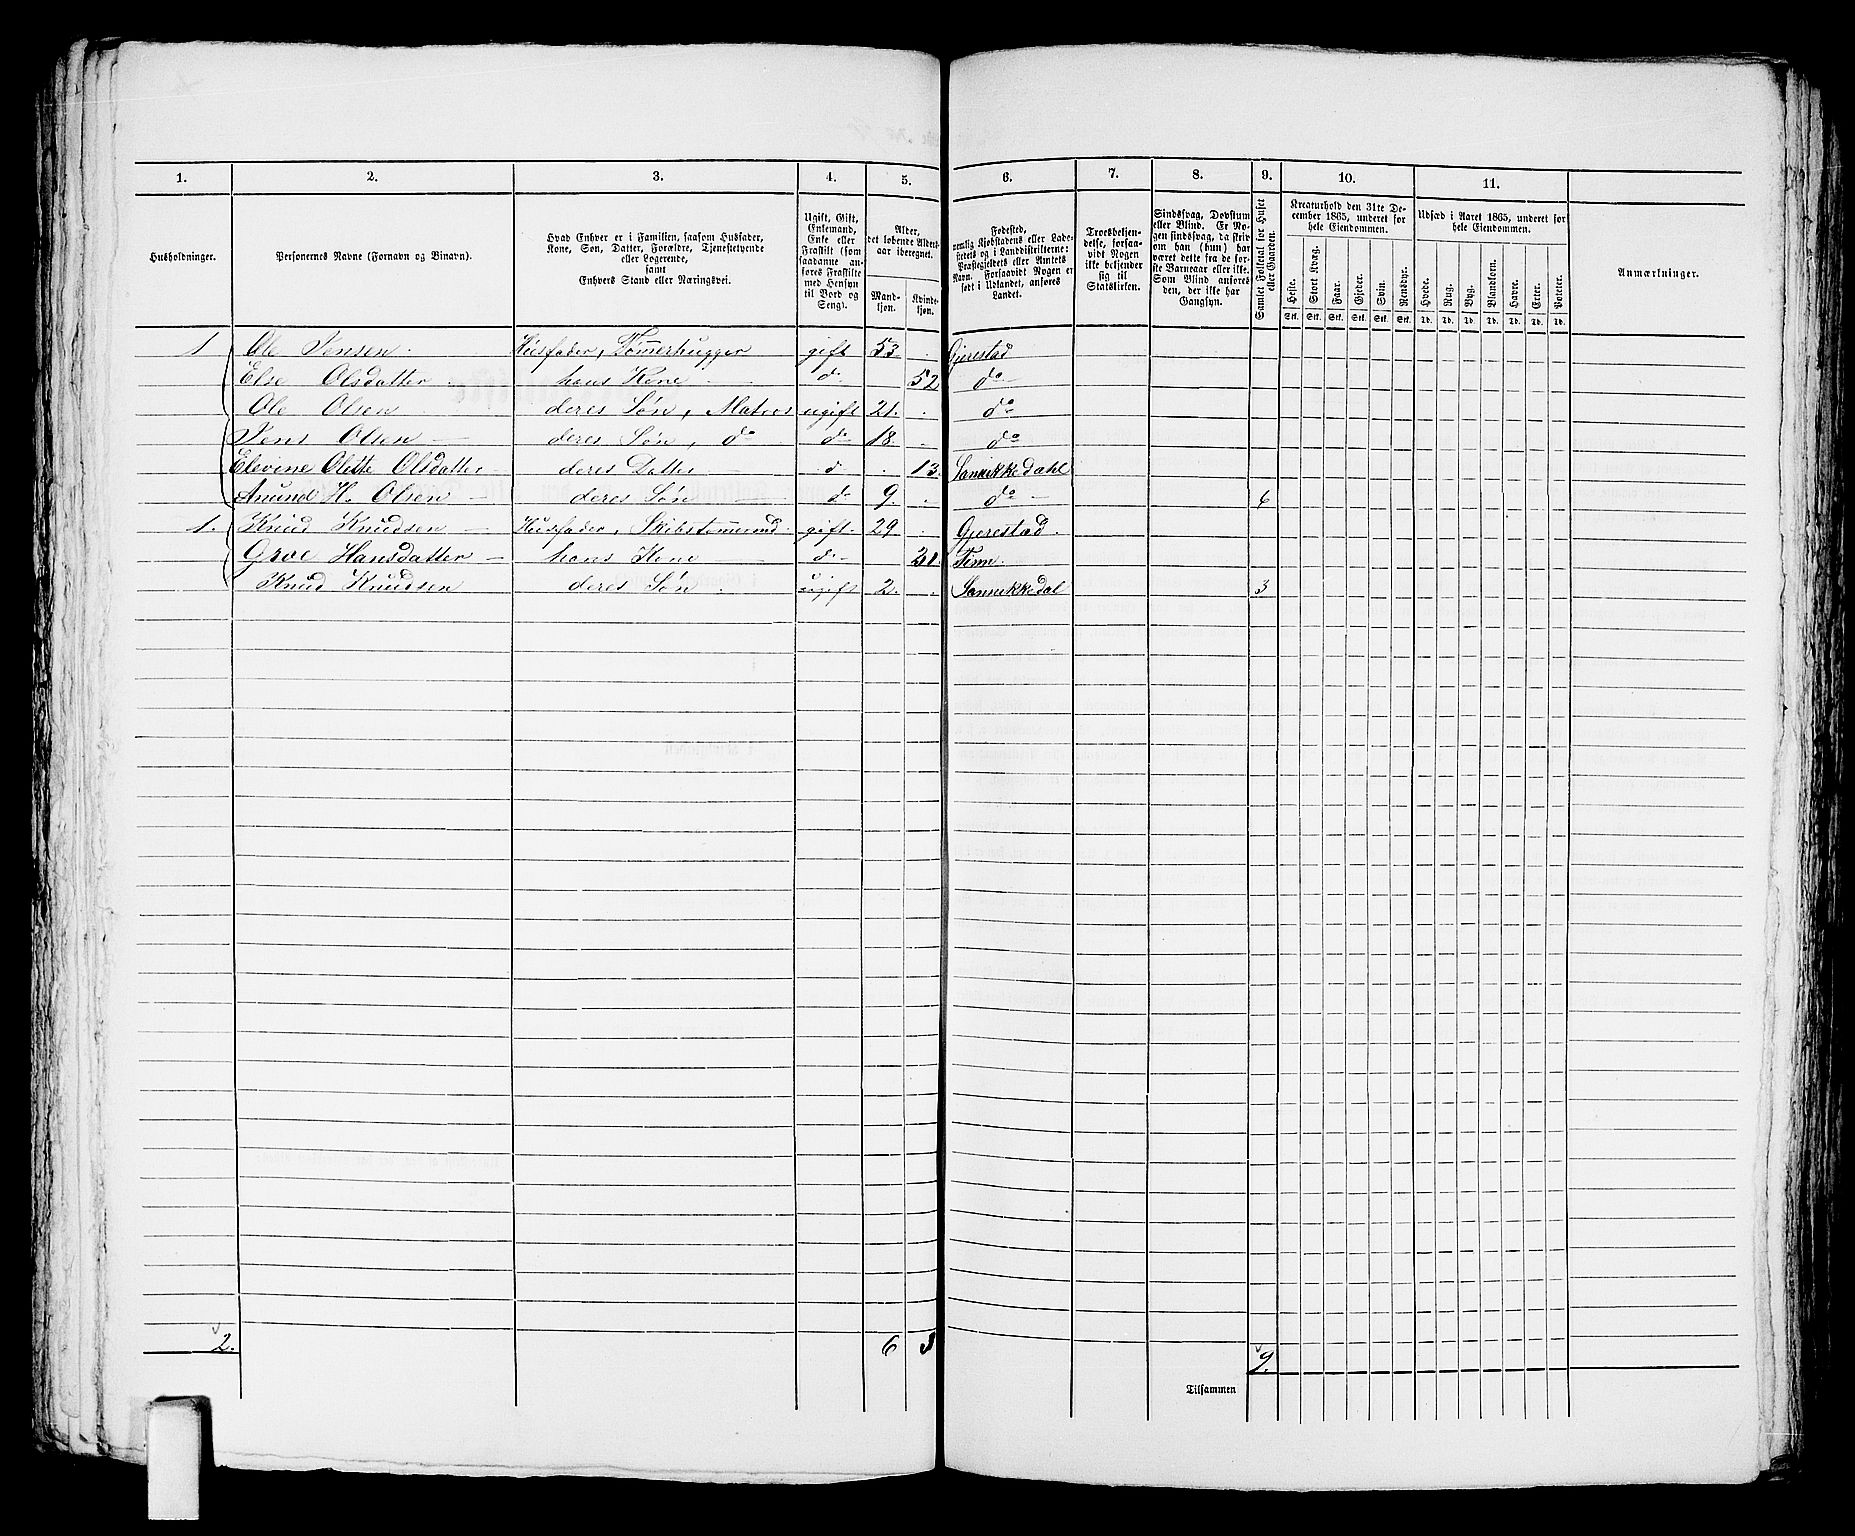 1. 2. 3. 4. 5. 6. 7. 8. 9. 10. 11.
Husholdninger.
Personernes Navne (Fornavn og Binavn).
Hvad Enhver er i Familien, saasom Husfader,
Kone, Søn, Datter, Forældre, Tjenestetyende
eller Logerende,
samt
Enhvers Stand eller Næringsvei.
Ugift, Gift,
Enkemand,
Enke eller
Fraskilt (som
saadanne an-
føres Fraskilte
med Hensyn
til Bord og
Seng).
Alder,
det løbende Alders-
aar iberegnet.
Mand-
kjøn.
Kvinde-
kjøn.
Fødested,
nemlig Kjøbstadens eller Lade-
stedets og i Landdistrikterne:
Præstegjeldets eller Amtets
Navn. Forsaavidt Nogen er
født i Udlandet, anføres
Landet.
Troesbekjen-
delse, forsaa-
vidt Nogen
ikke bekjender
sig til
Statskirken.
Sindssvag, Døvstum
eller Blind. Er No-
gen sindssvag, da skriv
om han (hun) har
været dette fra de før-
ste Barneaar eller ikke.
Som Blind anføres
den, der ikke har
Gangsyn.
Samlet Folketal for Huset
eller Gaarden.
Kreaturhold den 31te De-
cember 1865, underet for
hele Eiendommen.
Heste. Stort Kvæg. Faar. Gjeder. Svin. Rensdyr.
Stk. Stk. Stk. Stk. Stk. Stk.
Udsæd i Aaret 1865, underet for
hele Eiendommen.
Hvede. Rug. Byg. Blandkorn. Havre. Erter. Poteter.
Td. Td. Td. Td. Td. Td. Td.
Anmærkninger.
1 Ole Jensen Husfader, Tømerhugger gift 53 Gjerestad
Else Olsdatter hans Kone do 52 do
Ole Olsen deres Søn, Matros ugift 21. do
Jens Olsen deres Søn, do do 18. do
Elevine Olette Olsdatter deres Datter do 13. Sannikkedahl
Amund H. Olsen deres Søn do 9. do 6
1. Knud Knudsen Husfader, Skibstømermd. gift 29 Gjerestad.
Groe Hansdatter hans Kone do 31. Finn.
Knud Knudsen deres Søn ugift 2. Sannikkedal 3
2. 6 3 9.
Tilsammen